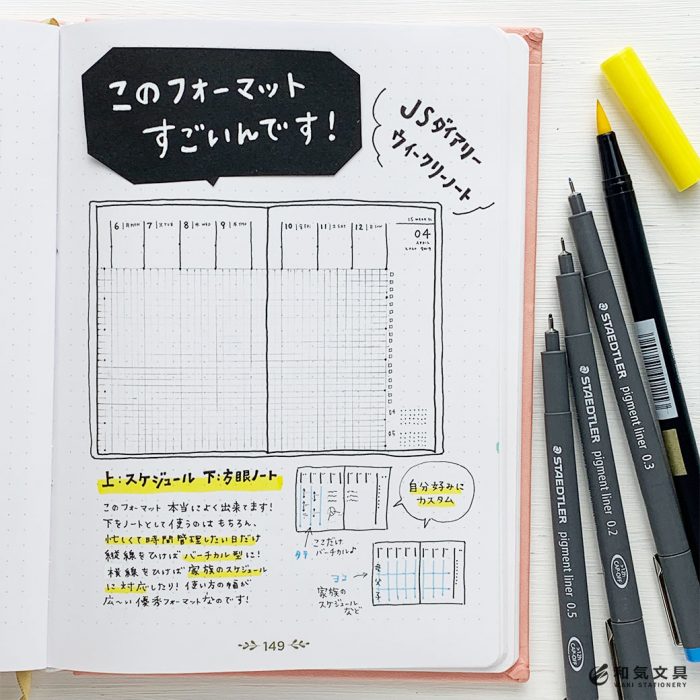 このフォーマット
すごいんです!
JSダイアリー
ウィークリーノート
6 月 MON 7 火 TUE 8 水 WED 9 木 THU
10 金 FRI 11 土 SAT 12 日 SUN
15 WEEK
04
APRIL
04
05
上:スケジュール 下:方眼ノート
このフォーマット 本当によく出来てます!
下をノートとして使うのは もちろん、
忙しくて時間管理したい日だけ
縦線をひけば バーチカル型に!
横線をひけば 家族のスケジュール
に対応したり! 使い方の幅が
広〜い 優秀フォーマットなのです!
自分好みに
カスタム
タテ
ここだけ
バーチカル♪
ヨコ
母
父
子
家族の
スケジュール
など
149
STAEDTLER pigment liner 0.3
STAEDTLER pigment liner 0.2
STAEDTLER pigment liner 0.5
CAP-OFF
CAP-OFF
和気文具
WAKI STATIONERY